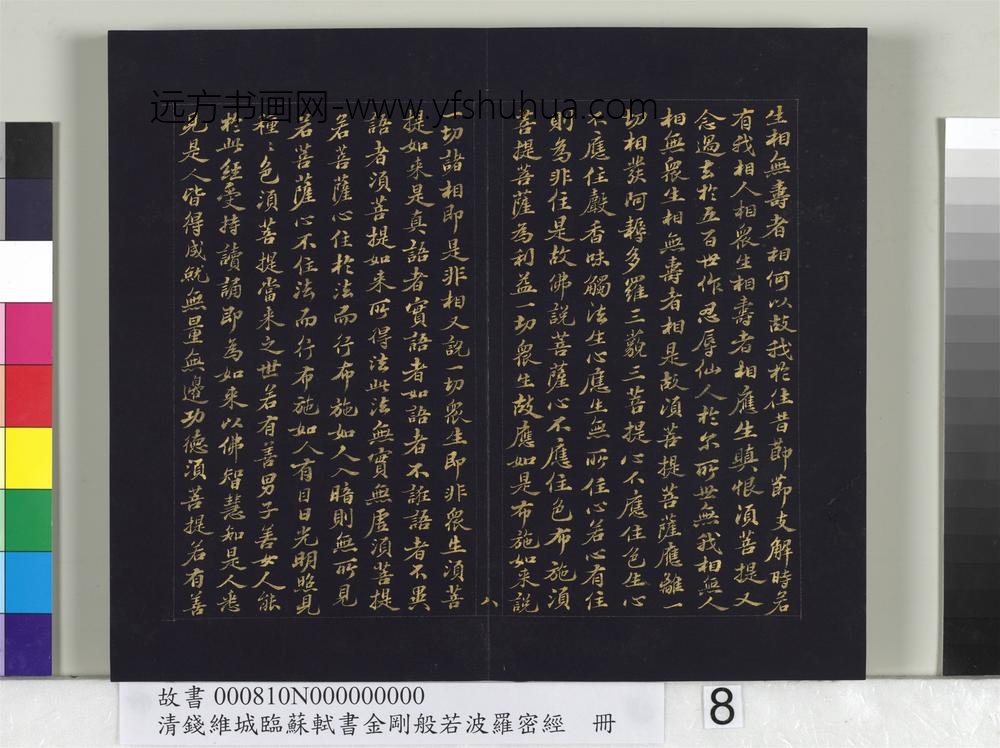 远方书画网-www.yfshuhua.com
生相無壽者相何以故我於往昔節節支解時若
有我相人相衆生相壽者相應生瞋恨須菩提又
念過去於五百世作忍辱仙人於尔所世無我相無人
相無衆生相無壽者相是故須菩提菩薩應離一
切相發阿耨多羅三藐三菩提心不應住色生心
不應住聲香味觸法生心應生無所住心若心有住
則為非住是故佛說菩薩心不應住色布施須
菩提菩薩為利益一切衆生故應如是布施如来說
一切諸相即是非相又說一切衆生即非衆生須菩
提如来是真語者實語者如語者不誑語者不異
語者須菩提如来所得法此法無實無虛須菩提
若菩薩心住於法而行布施如人入暗則無所見
若菩薩心不住法而行布施如人有目日光明照見
種〻色須菩提當来之世若有善男子善女人能
於此經受持讀誦即為如来以佛智慧知是人悉
見是人皆得成就無量無邊功德須菩提若有善
八
故書 000810N000000000
清錢維城臨蘇軾書金剛般若波羅密經 冊
8